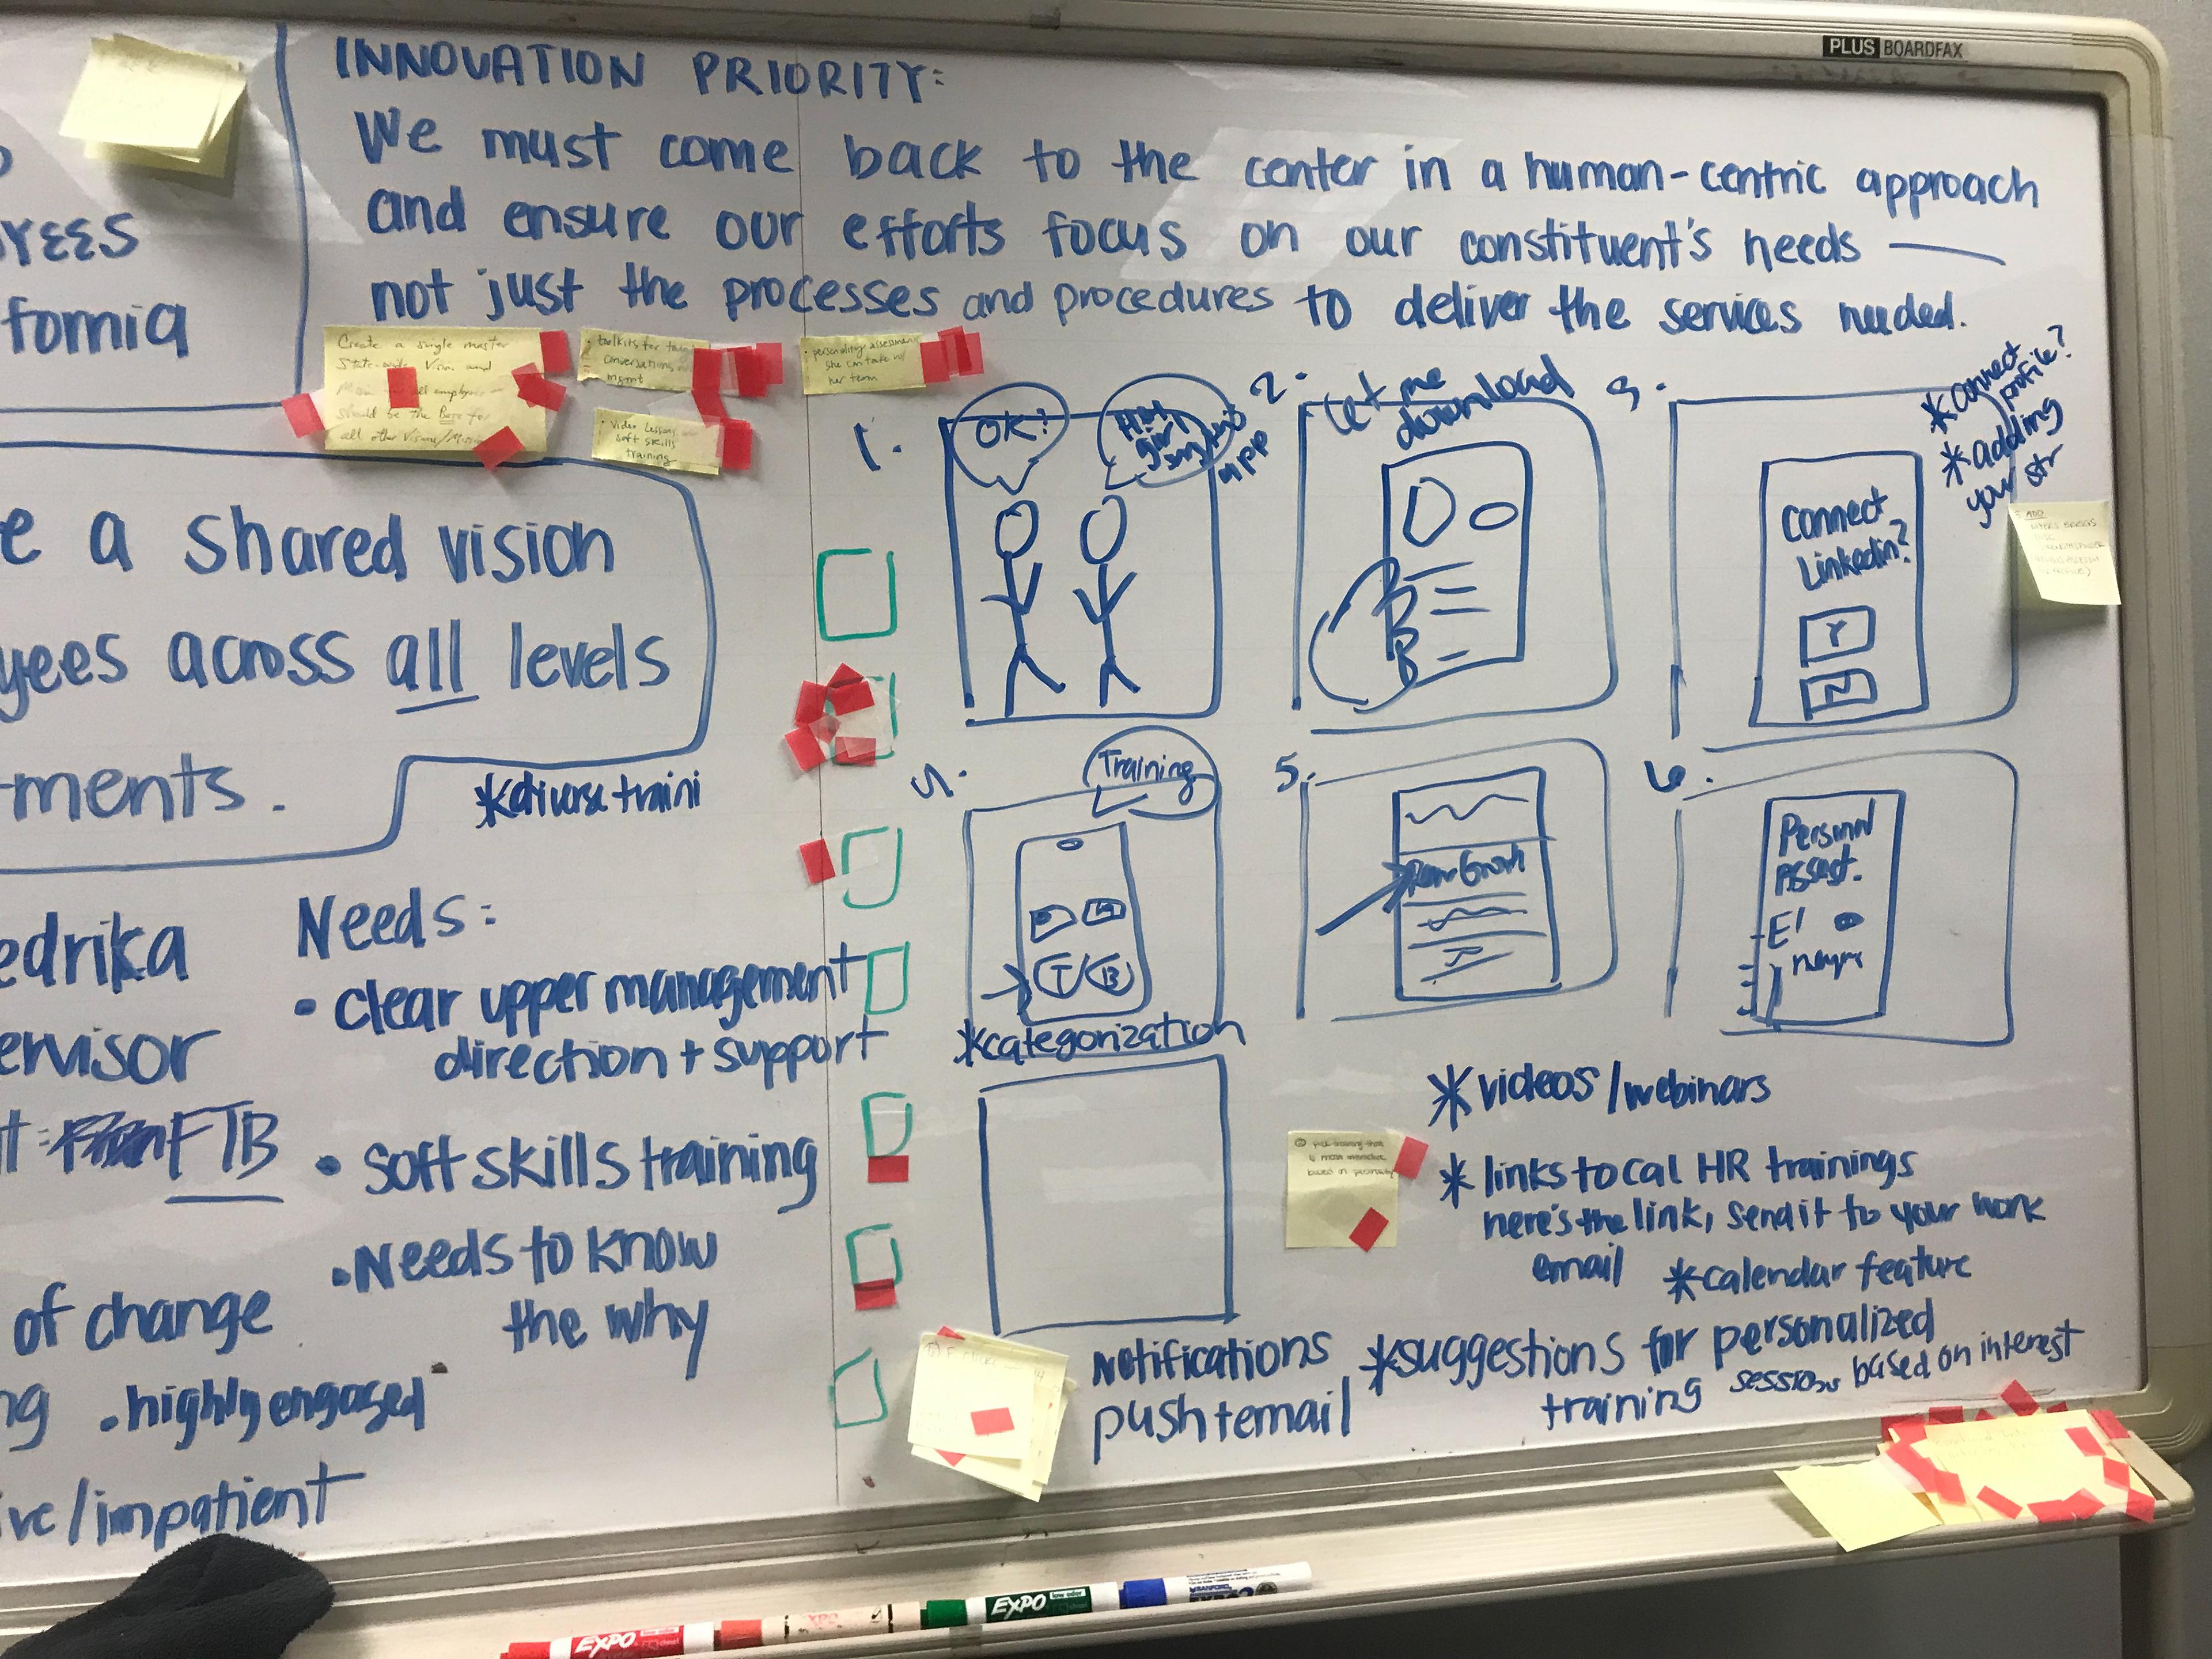 PLUS BOARDFAX
INNOVATION PRIORITY:
We must come back to the center in a human-centric approach
and ensure our efforts focus on our constituent's needs —
not just the processes and procedures to deliver the services needed.
YEES
fornia
Create a single master
State-wide Vision and
all employees
should be the Base for
all other Visions/Mission
• toolkits for
conversations,
mgmt
• video lessons
soft skills
training
• personality assessment
she can take w/
her team
e a shared vision
yees across all levels
tments.
*diverse traini
edrika
ervisor
FTB
of change
ng • highly engaged
ive/impatient
Needs:
• clear upper management
direction + support
• soft skills training
• Needs to know
the why
1.
OK?
Hey
girl
app
2.
Let me
download
3.
Connect
Linkedin?
Y
N
*connect
profile?
*adding
your str
ADD
4.
Training
T/B
*categorization
5.
6.
Personal
Assest.
*videos/webinars
*links to cal HR trainings
here's the link, send it to your work
email
*calendar feature
*suggestions for personalized
training sessions based on interest
Notifications
push+email
EXPO
EXPO low odor